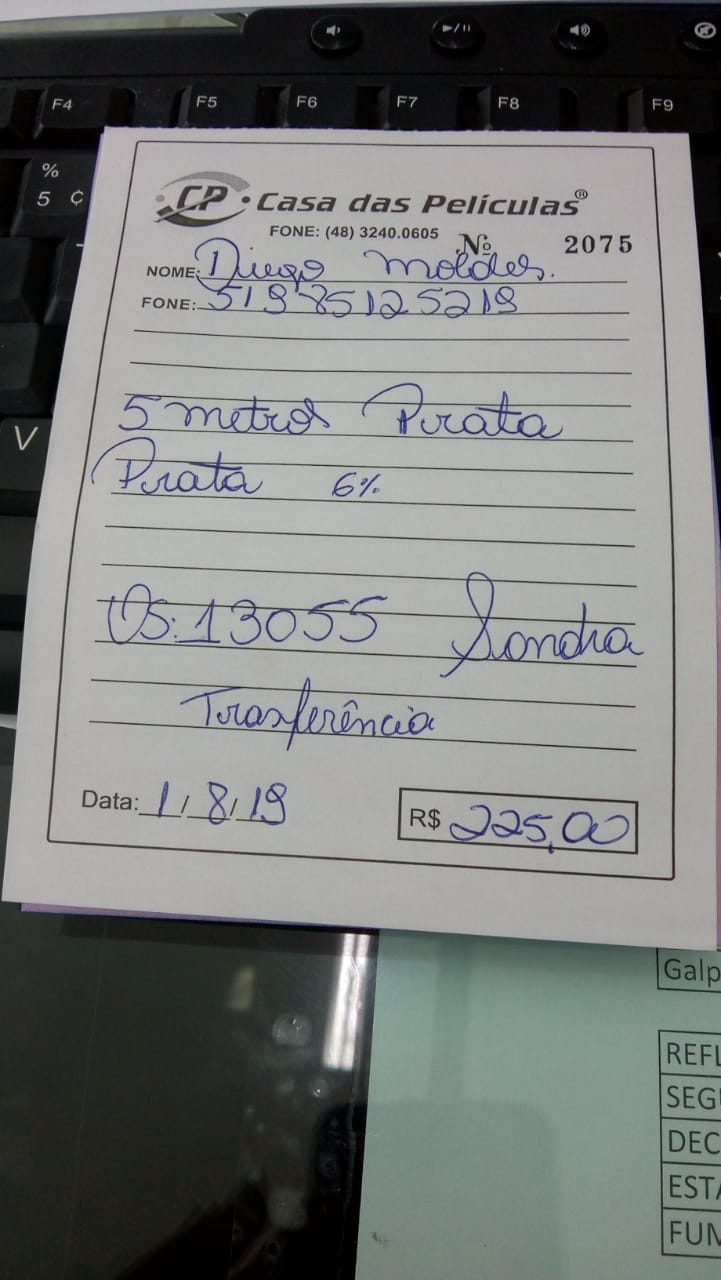 F4 F5 F6 F7 F8 F9
%
5 ¢
V
CP Casa das Películas®
FONE: (48) 3240.0605
Nº 2075
NOME: Diego Moldes.
FONE: 51985125219
5 metros Prata
Prata 6%
OS: 13055 Sandra
Trasferência
Data: 1/8/19
R$ 225,00
Galp
REFL
SEGU
DEC
ESTA
FUM